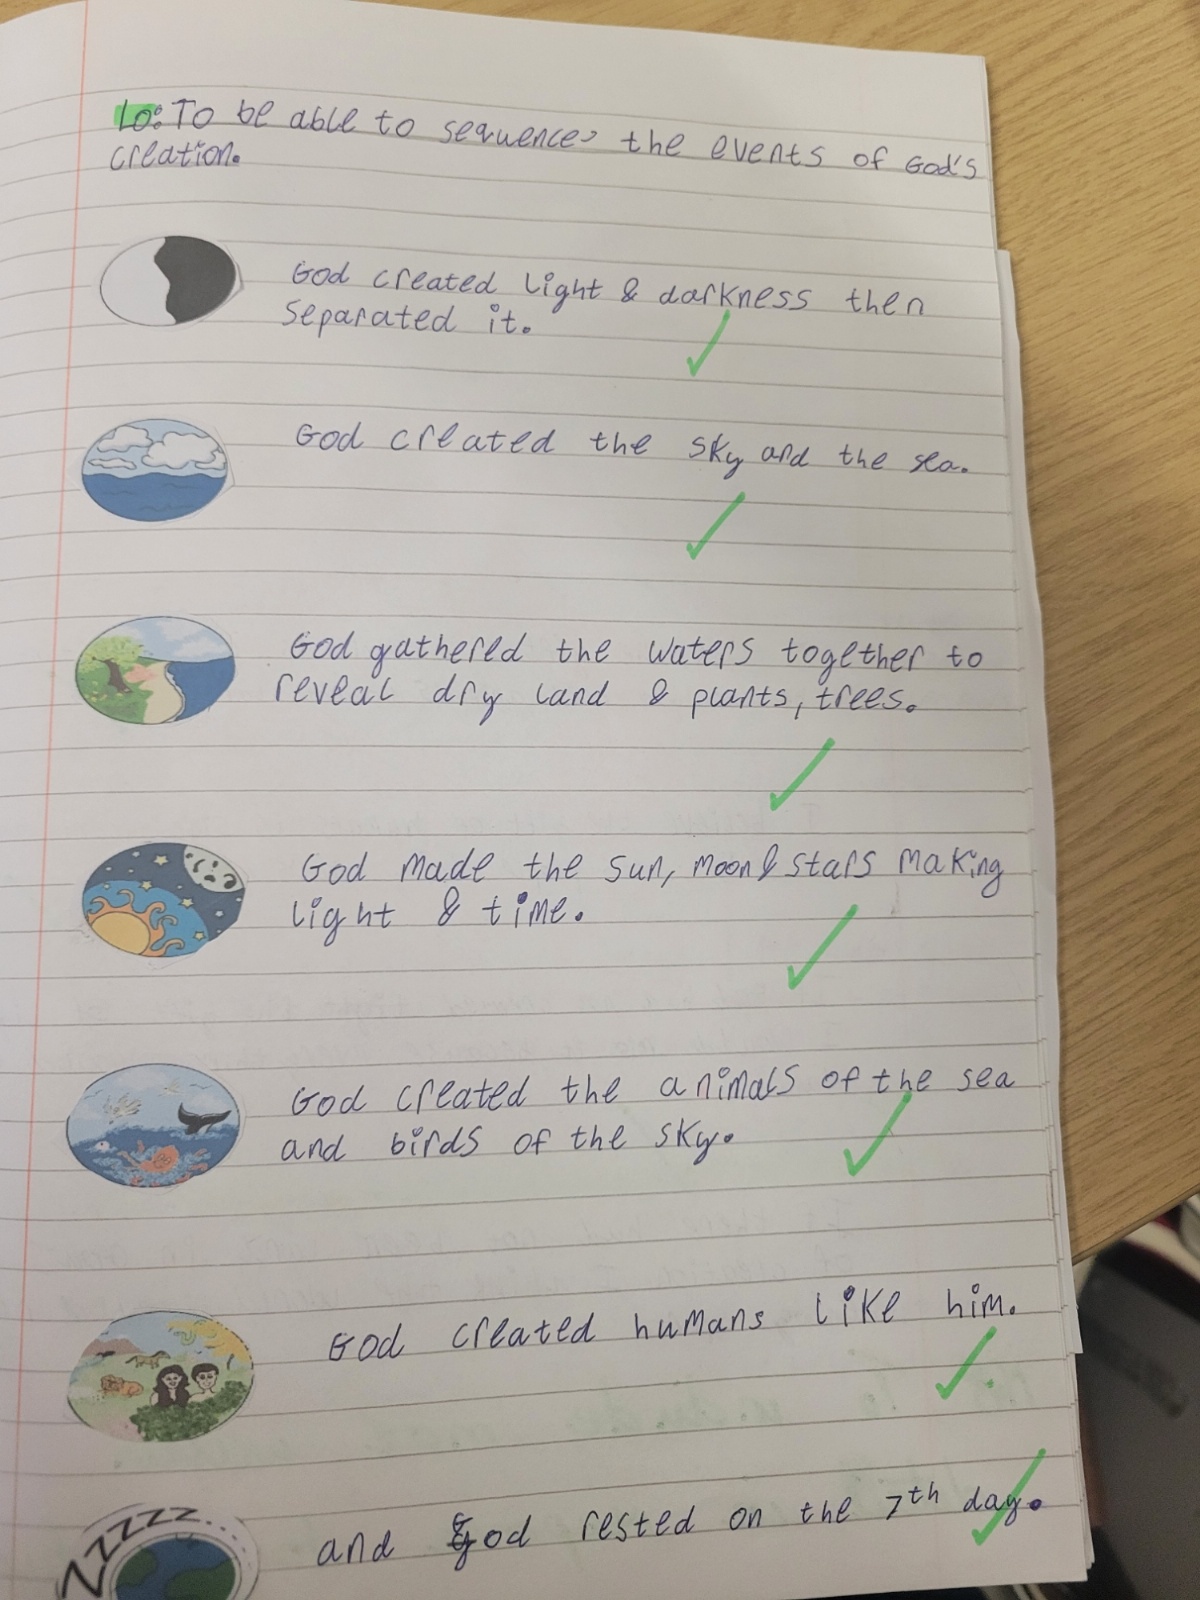 LO: To be able to sequence the events of God's
creation.
God created light & darkness then
separated it.
God created the sky and the sea.
God gathered the waters together to
reveal dry land & plants, trees.
God made the sun, moon & stars making
light & time.
God created the animals of the sea
and birds of the sky.
God created humans like him.
ZZZZZZ
and God rested on the 7th day.